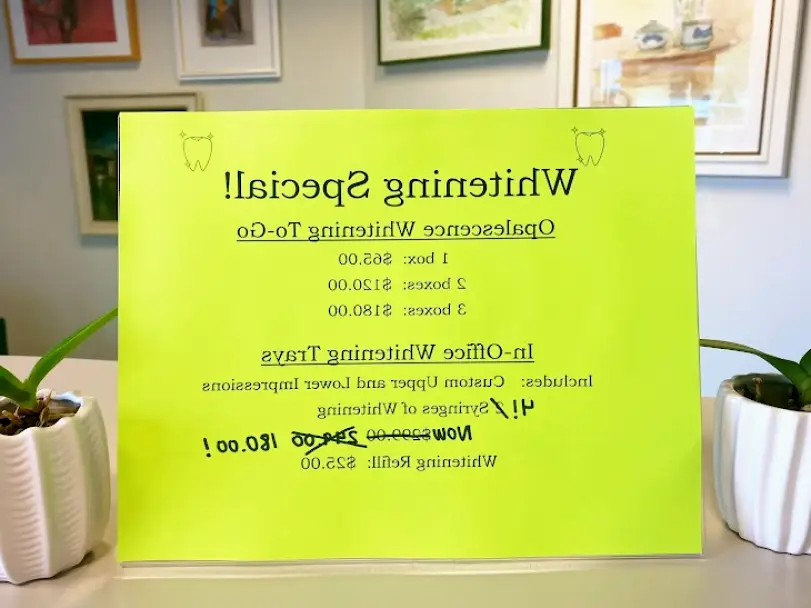 Whitening Special!
Opalescence Whitening To-Go
1 box: $65.00
2 boxes: $120.00
3 boxes: $180.00
In-Office Whitening Trays
Includes: Custom Upper and Lower Impressions
4!! 2 Syringes of Whitening
Now $299.00 249.00 180.00!
Whitening Refill: $25.00